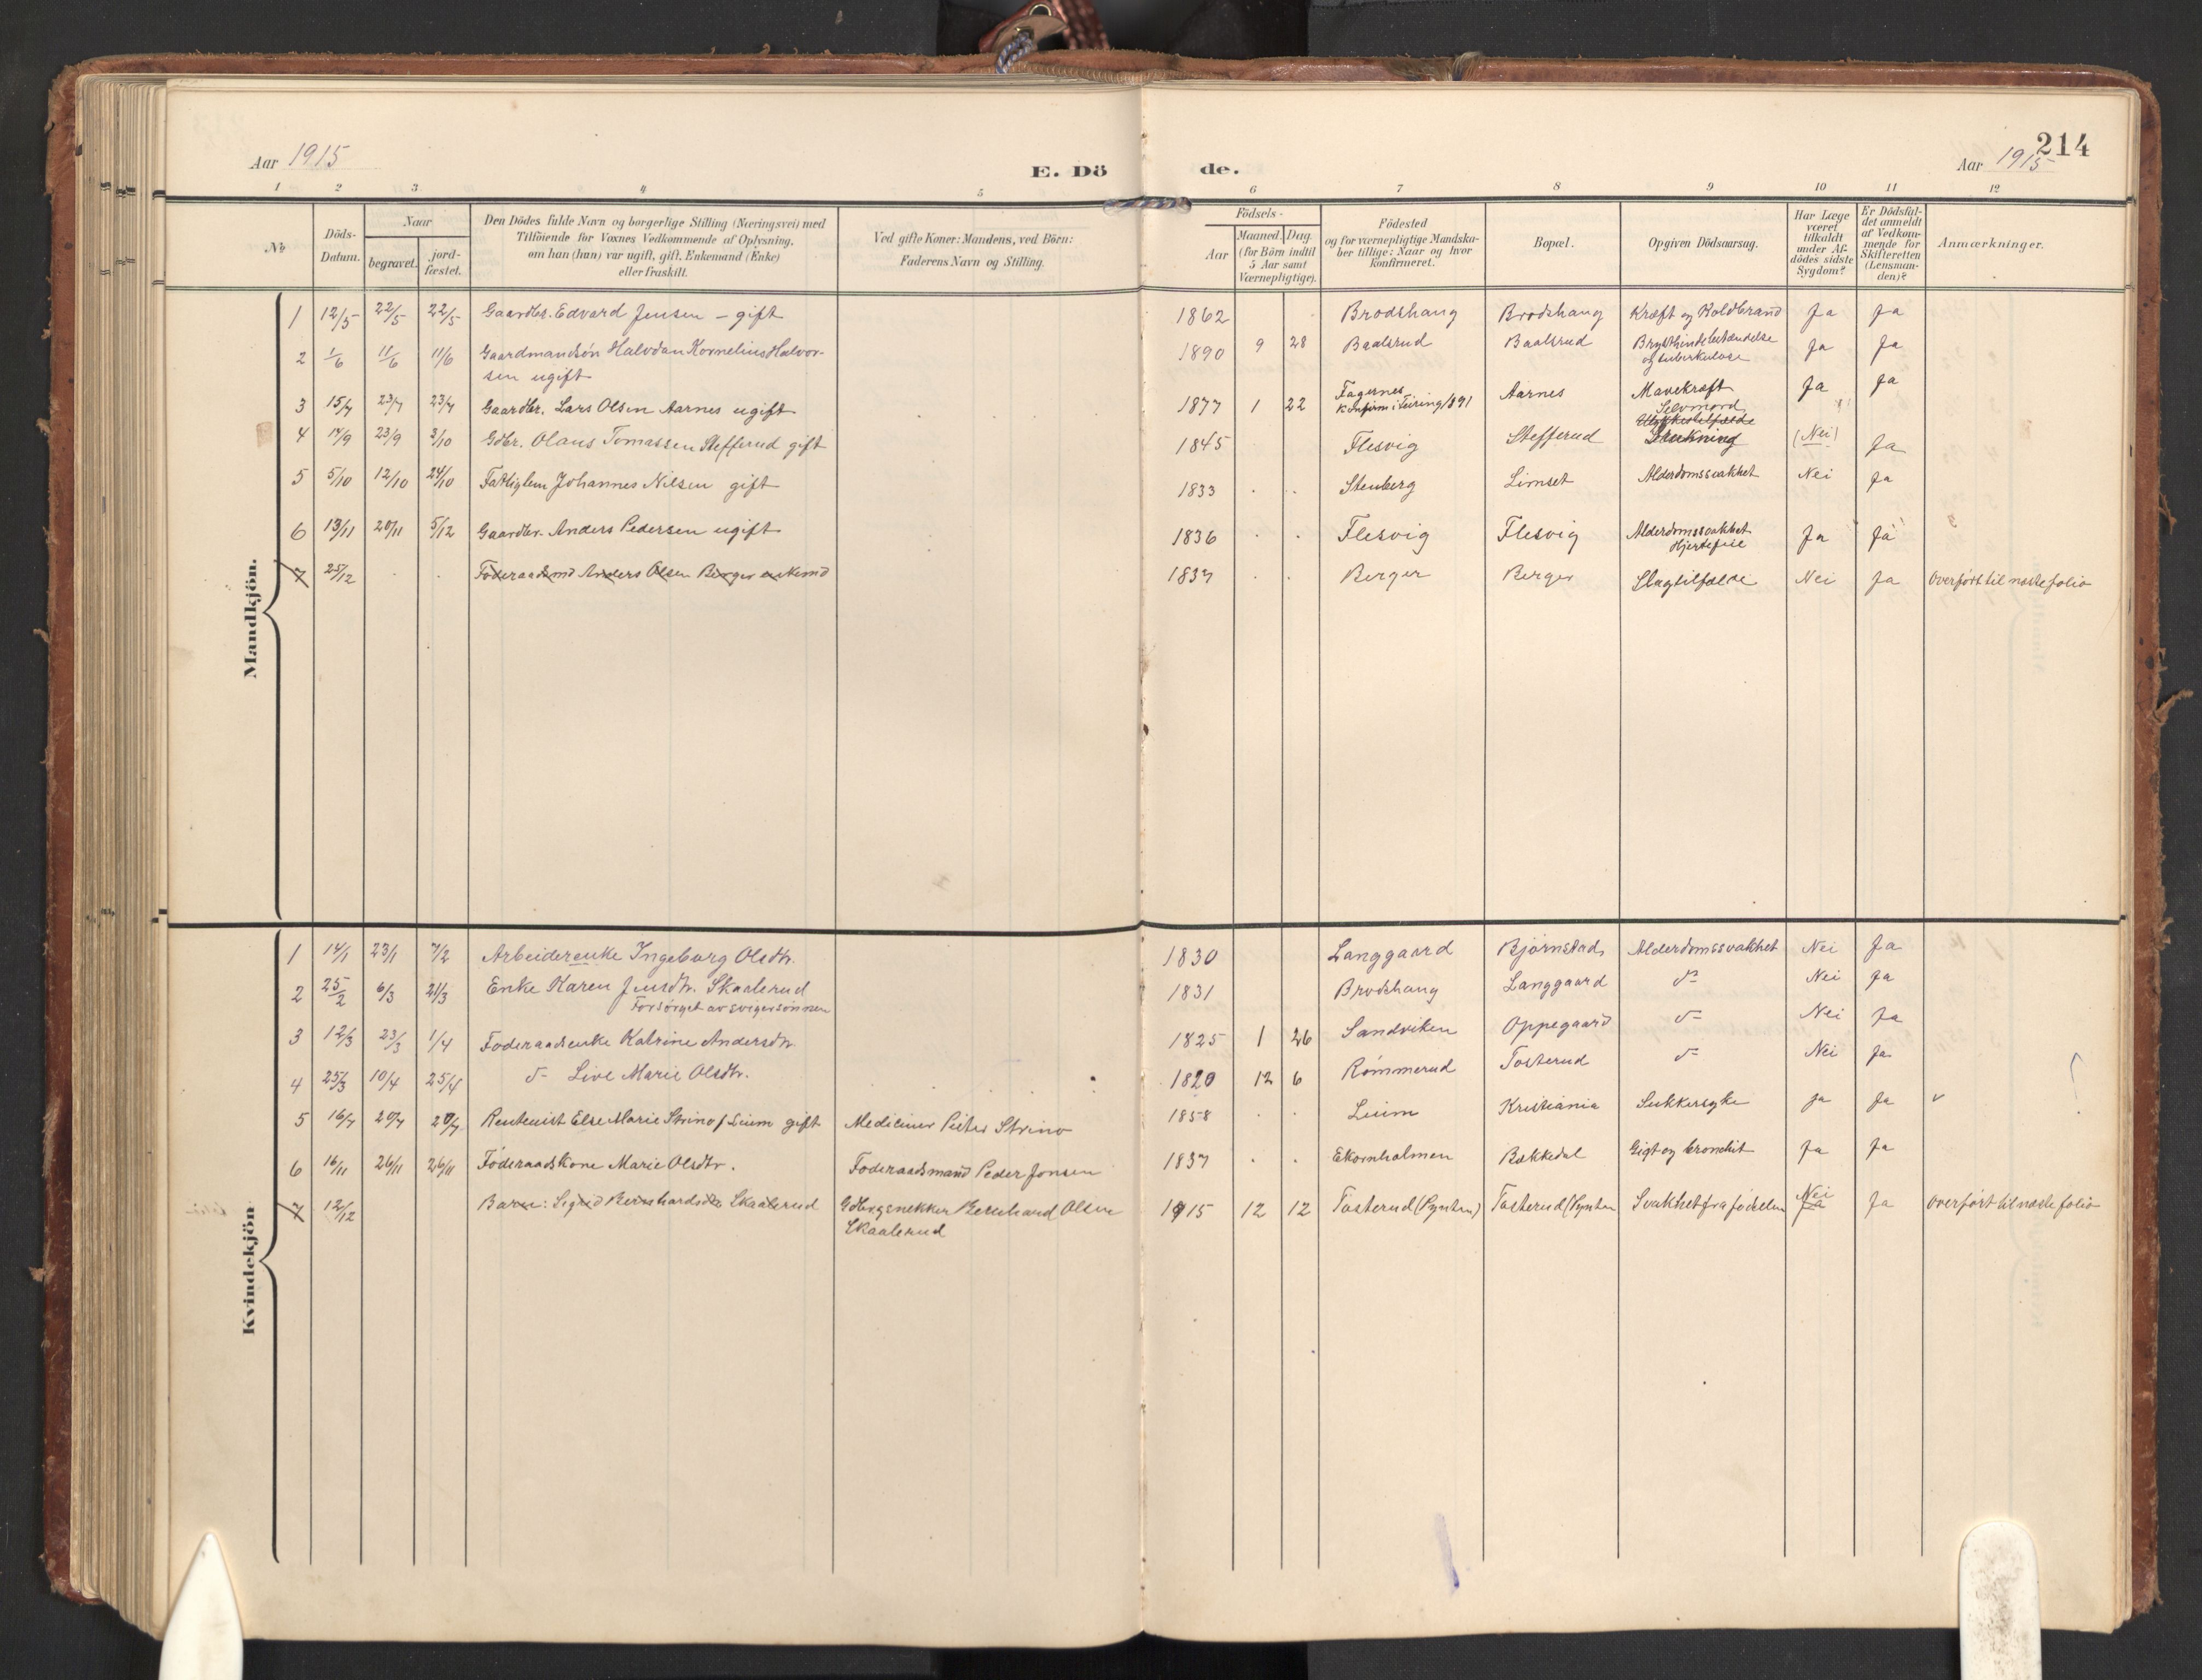 Aar 1915
E. Dö de.
Aar 1915
214
1 2 3 4 5 6 7 8 9 10 11 12
No
Döds-Datum.
Naar
begravet.
jord-fæstet.
Den Dödes fulde Navn og borgerlige Stilling (Næringsvei) med
Tilföiende for Voxnes Vedkommende af Oplysning,
om han (hun) var ugift, gift, Enkemand (Enke)
eller fraskilt.
Ved gifte Koner: Mandens, ved Börn:
Faderens Navn og Stilling.
Födsels-
Aar
Maaned. Dag.
(for Börn indtil
5 Aar samt
Værnepligtige).
Födested
og for værnepligtige Mandska-
ber tillige: Naar og hvor
Konfirmeret.
Bopæl.
Opgiven Dödsaarsag.
Har Læge
været
tilkaldt
under Af-
dödes sidste
Sygdom?
Er Dödsfal-
det anmeldt
af Vedkom-
mende for
Skifteretten
(Lensman-
den)?
Anmærkninger.
Mandkjön.
1 12/5 22/5 22/5 Gaardbr. Edvard Jensen - gift 1862 Brodshaug Brodshaug Kræft og Koldbrand Ja Ja
2 1/6 11/6 11/6 Gaardmandsøn Halvdan Kornelius Halvor- 1890 9 28 Baalsrud Baalsrud Brysthindebetændelse Ja Ja
sen ugift og tuberkulose
3 15/7 23/7 23/7 Gaardbr. Lars Olsen Aarnes ugift 1877 1 22 Fagernes Aarnes Mavekræft Ja Ja
Konfirm i Feiring 1891
Selvmord
Ulykkestilfælde
4 14/9 23/9 3/10 Gdbr. Olaus Tomassen Stefferud gift 1845 Flesvig Stefferud Drukning (Nei) Ja
5 5/10 12/10 24/10 Fattiglem Johannes Nilsen gift 1833 Stenberg Limset Alderdomssvakhet Nei Ja
6 13/11 20/11 5/12 Gaardbr. Anders Pedersen ugift 1836 Flesvig Flesvig Alderdomssvakhet Ja Ja
Hjertefeil
7 25/12 Føderaadsmd Anders Olsen Berger enkemd 1837 Berger Berger Slagtilfælde Nei Ja Overført til næste folio
Kvindekjön
1 14/1 23/1 7/2 Arbeiderenke Ingeborg Olsdtr. 1830 Langgaard Bjørnstad Alderdomssvakhet Nei Ja
2 25/2 6/3 21/3 Enke Karen Jensdtr. Skaalerud 1831 Brodshaug Langgaard do Nei Ja
Forsørget av svigersønnen
3 12/3 23/3 1/4 Føderaadsenke Katrine Andersdtr. 1825 1 26 Sandviken Oppegaard do Nei Ja
4 25/3 10/4 25/4 do Live Marie Olsdtr. 1820 12 6 Rømmerud Tosterud do Nei Ja
5 16/7 20/7 20/7 Rentenist Else Marie Strino f. Leium gift Mediciner Peter Strino 1858 Leium Kristiania Sukkersyke Ja Ja v
6 16/11 26/11 26/11 Føderaadskone Marie Olsdtr. Føderaadsmand Peder Jonsen 1837 Ekornholmen Bækkedal Gigt og bronchit Ja Ja
7 12/12 Barn: Sigrid Bernhardsdtr Skaalerud Gdbrgsnekker Bernhard Olsen 1915 12 12 Tosterud (Pynten) Tosterud (Pynten Svakhet fra fødselen Nei Ja Ja Overført til næste folio
Skaalerud